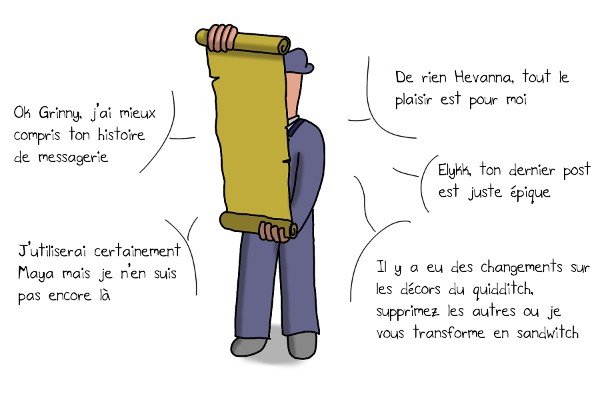 Ok Grinny, j'ai mieux
compris ton histoire
de messagerie
J'utiliserai certainement
Maya mais je n'en suis
pas encore là
De rien Hevanna, tout le
plaisir est pour moi
Elykk, ton dernier post
est juste épique
Il y a eu des changements sur
les décors du quidditch,
supprimez les autres ou je
vous transforme en sandwitch